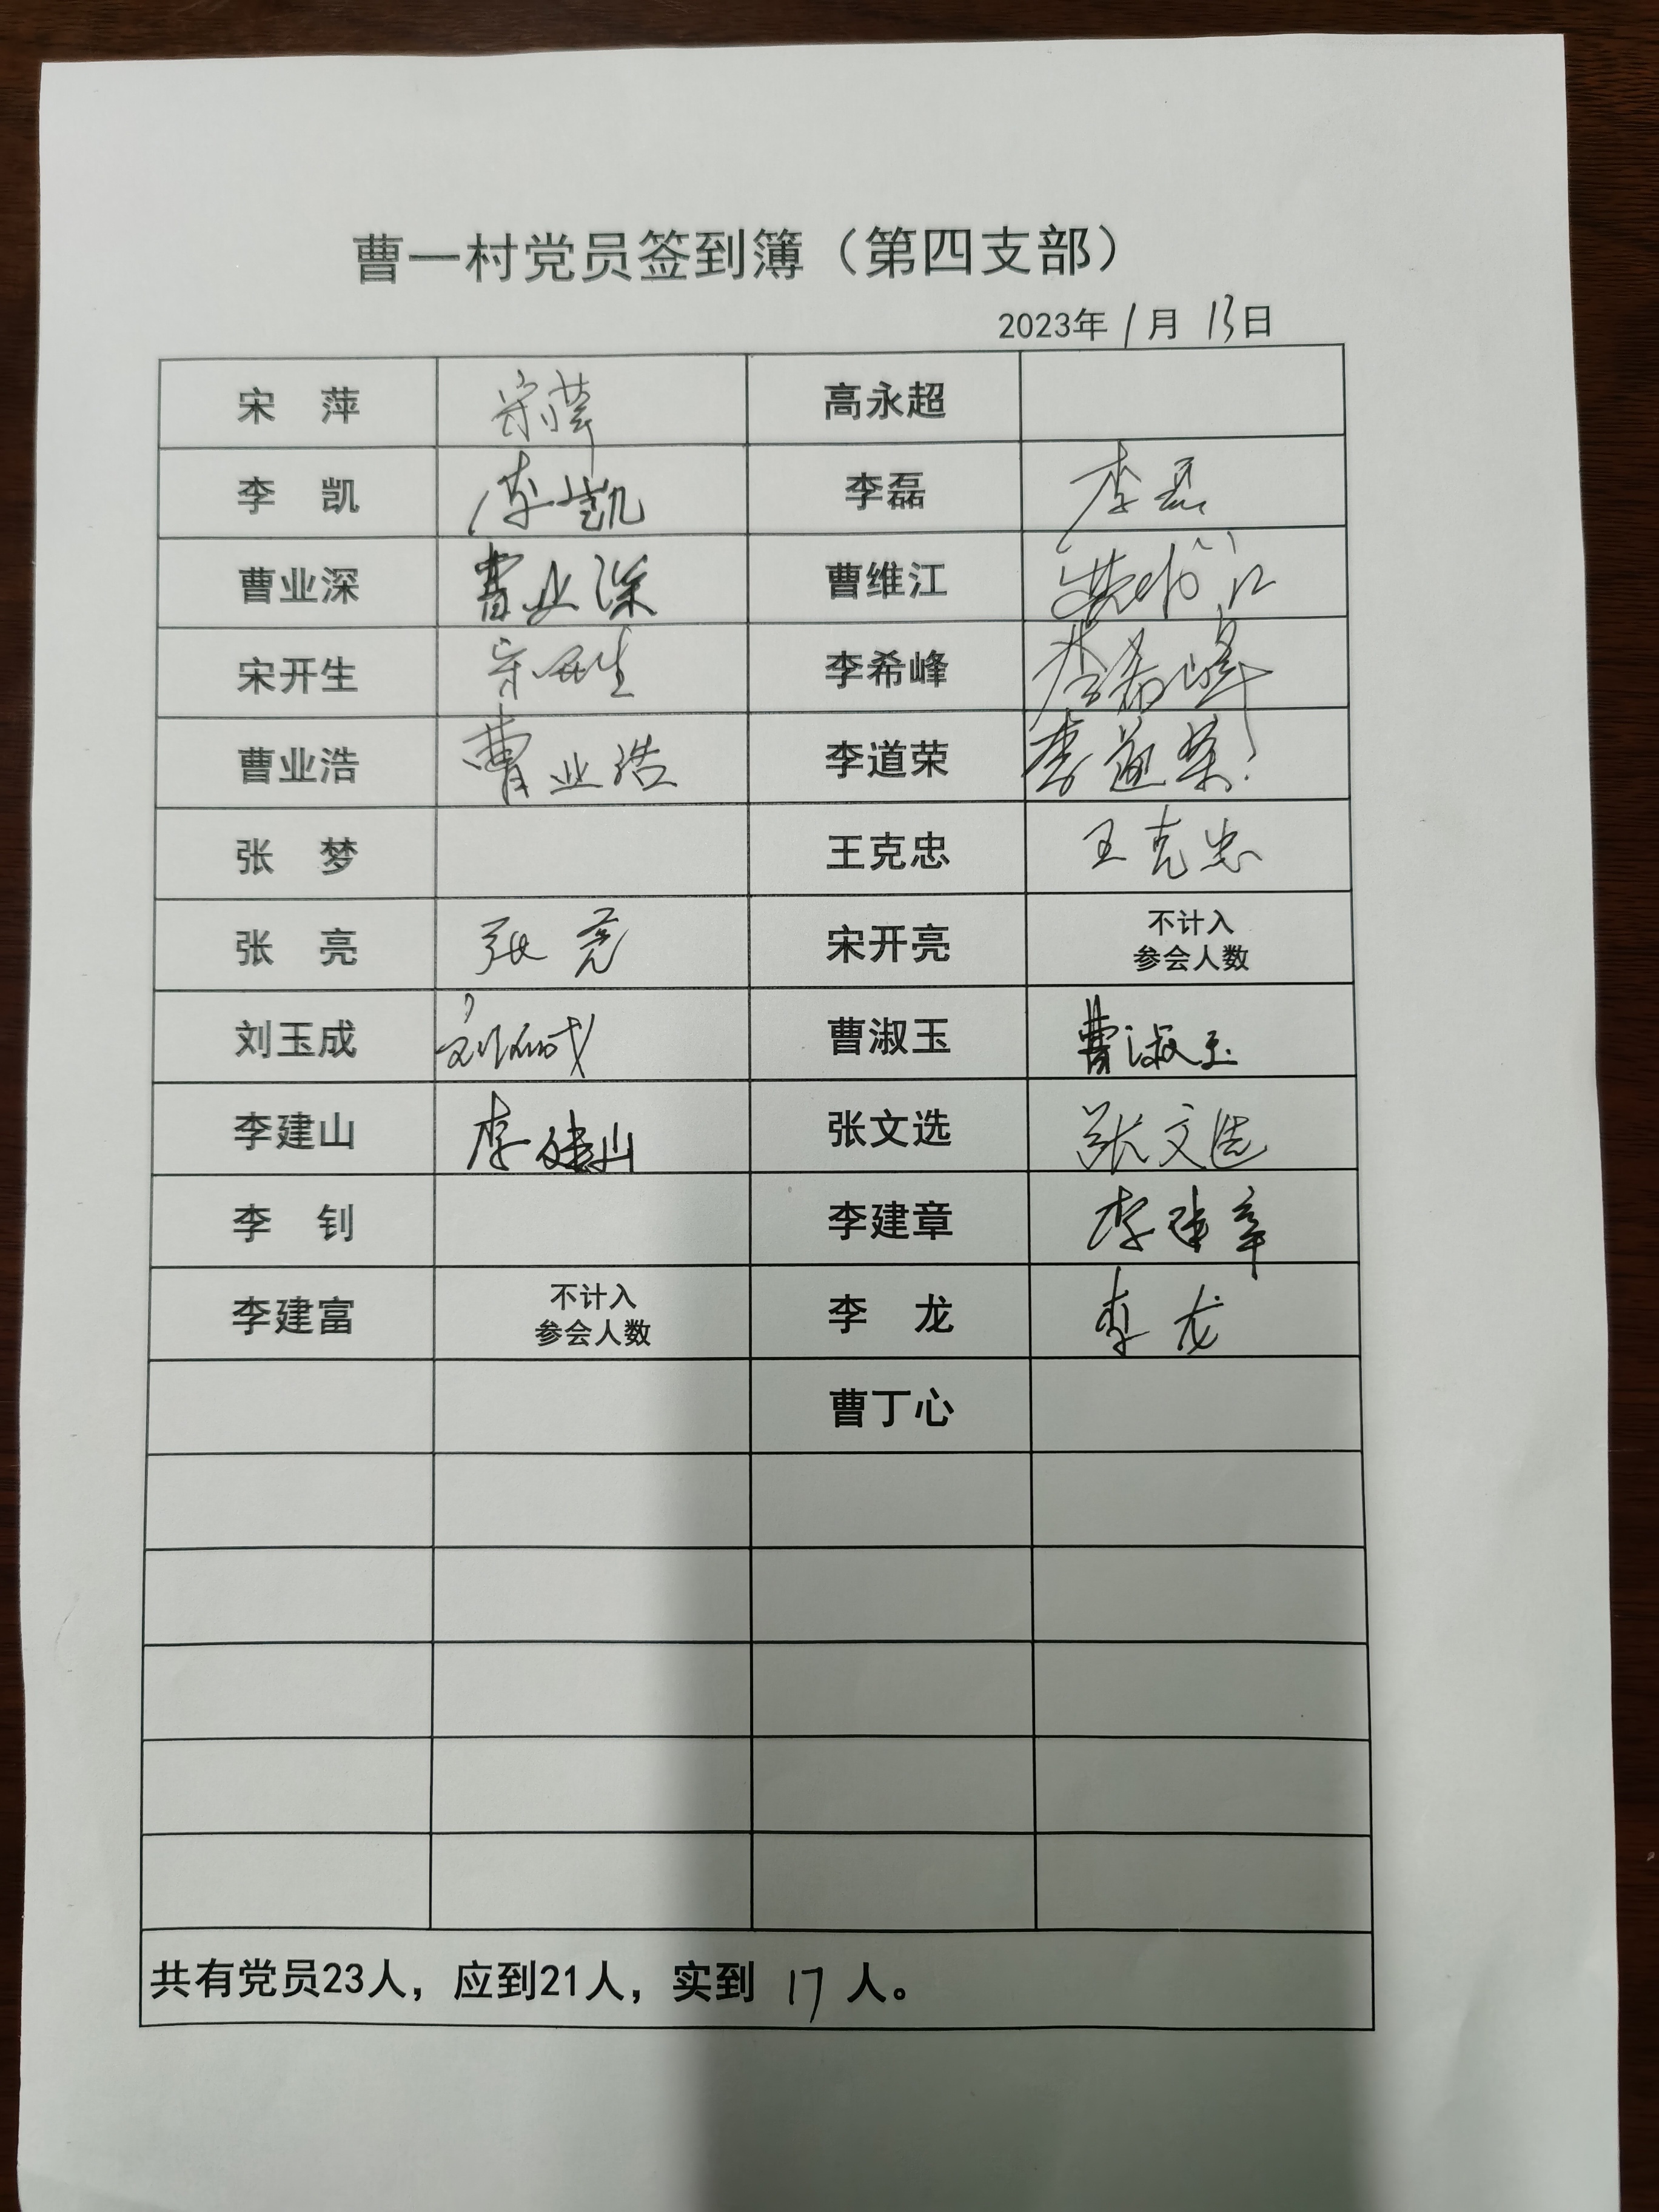 曹一村党员签到簿（第四支部）
2023年1月13日
宋 萍 宋萍 高永超
李 凯 李凯 李磊 李磊
曹业深 曹业深 曹维江 曹维江
宋开生 宋开生 李希峰 李希峰
曹业浩 曹业浩 李道荣 李道荣
张 梦 王克忠 王克忠
张 亮 张亮 宋开亮 不计入
参会人数
刘玉成 刘玉成 曹淑玉 曹淑玉
李建山 李建山 张文选 张文选
李 钊 李建章 李建章
李建富 不计入
参会人数 李 龙 李龙
曹丁心
共有党员23人，应到21人，实到 17 人。